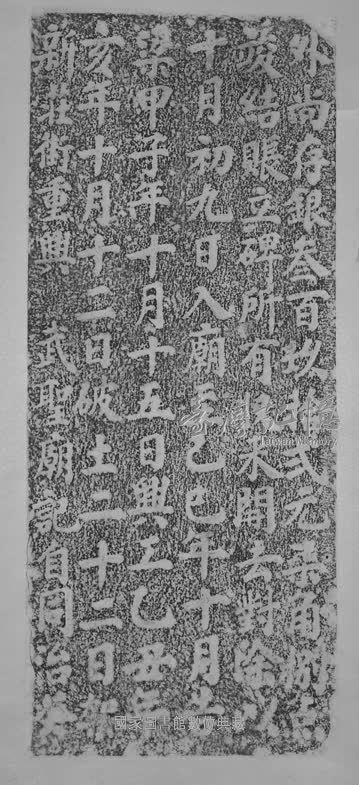 新莊街重興 武聖廟記自同治
亥年十月十二日破土二十二日
梁甲子年十月十五日興工乙丑年
十月初九日入廟至己巳年十月
竣結賬立碑所有未開云對除
外尚存銀叁百玖拾弍元
國家圖書館數位典藏